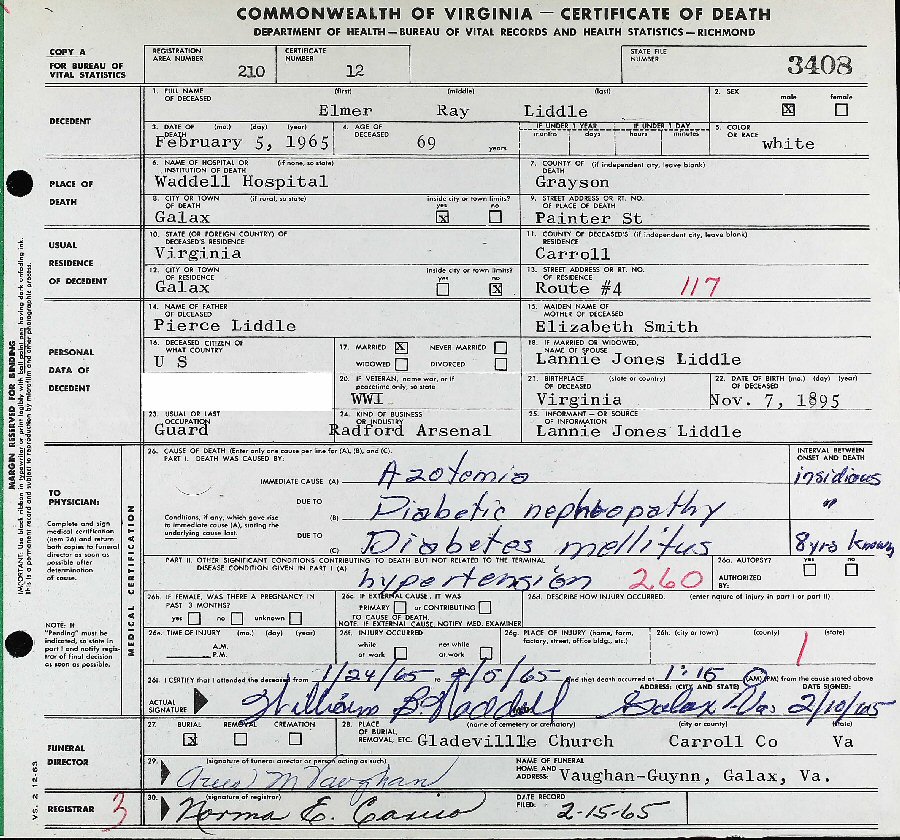 COMMONWEALTH OF VIRGINIA — CERTIFICATE OF DEATH
DEPARTMENT OF HEALTH—BUREAU OF VITAL RECORDS AND HEALTH STATISTICS—RICHMOND
COPY A
FOR BUREAU OF VITAL STATISTICS
REGISTRATION AREA NUMBER 210
CERTIFICATE NUMBER 12
STATE FILE NUMBER 3408
DECEDENT
1. FULL NAME OF DECEASED (first) (middle) (last)
Elmer Ray Liddle
2. SEX male female
X
3. DATE OF DEATH (mo.) (day) (year)
February 5, 1965
4. AGE OF DECEASED 69 years
IF UNDER 1 YEAR months days
IF UNDER 1 DAY hours minutes
5. COLOR OR RACE
white
PLACE OF DEATH
6. NAME OF HOSPITAL OR INSTITUTION OF DEATH (if none, so state)
Waddell Hospital
7. COUNTY OF DEATH (if independent city, leave blank)
Grayson
8. CITY OR TOWN OF DEATH (if rural, so state)
Galax
inside city or town limits? yes no
X
9. STREET ADDRESS OR RT. NO. OF PLACE OF DEATH
Painter St
USUAL RESIDENCE OF DECEDENT
10. STATE (OR FOREIGN COUNTRY) OF DECEASED'S RESIDENCE
Virginia
11. COUNTY OF DECEASED'S RESIDENCE (if independent city, leave blank)
Carroll
12. CITY OR TOWN OF RESIDENCE
Galax
inside city or town limits? yes no
X
13. STREET ADDRESS OR RT. NO. OF RESIDENCE
Route #4 117
PERSONAL DATA OF DECEDENT
14. NAME OF FATHER OF DECEASED
Pierce Liddle
15. MAIDEN NAME OF MOTHER OF DECEASED
Elizabeth Smith
16. DECEASED CITIZEN OF WHAT COUNTRY
U S
17. MARRIED X NEVER MARRIED
WIDOWED DIVORCED
18. IF MARRIED OR WIDOWED, NAME OF SPOUSE
Lannie Jones Liddle
20. IF VETERAN, name war, or if peacetime only, so state
WWI
21. BIRTHPLACE OF DECEASED (state or country)
Virginia
22. DATE OF BIRTH (mo.) (day) (year) OF DECEASED
Nov. 7, 1895
23. USUAL OR LAST OCCUPATION
Guard
24. KIND OF BUSINESS OR INDUSTRY
Radford Arsenal
25. INFORMANT — OR SOURCE OF INFORMATION
Lannie Jones Liddle
TO PHYSICIAN:
Complete and sign medical certification (item 26) and return both copies to funeral director as soon as possible after determination of cause.
NOTE: If "Pending" must be indicated, so state in part I and notify registrar of final decision as soon as possible.
MEDICAL CERTIFICATION
26. CAUSE OF DEATH (Enter only one cause per line for (A), (B), and (C).
PART I. DEATH WAS CAUSED BY:
INTERVAL BETWEEN ONSET AND DEATH
IMMEDIATE CAUSE (A) Azotemia insidious
Conditions, if any, which gave rise to immediate cause (A), stating the underlying cause last.
DUE TO (B) Diabetic nephropathy "
DUE TO (C) Diabetes mellitus 8 yrs known
PART II. OTHER SIGNIFICANT CONDITIONS CONTRIBUTING TO DEATH BUT NOT RELATED TO THE TERMINAL DISEASE CONDITION GIVEN IN PART I (A)
hypertension 260
26a. AUTOPSY? yes no
AUTHORIZED BY:
26b. IF FEMALE, WAS THERE A PREGNANCY IN PAST 3 MONTHS?
yes no unknown
26c. IF EXTERNAL CAUSE, IT WAS
PRIMARY or CONTRIBUTING
TO CAUSE OF DEATH.
NOTE. IF EXTERNAL CAUSE, NOTIFY MED. EXAMINER
26d. DESCRIBE HOW INJURY OCCURRED. (enter nature of injury in part I or part II)
26e. TIME OF INJURY (mo.) (day) (year)
A.M.
P.M.
26f. INJURY OCCURRED
while at work not while at work
26g. PLACE OF INJURY (home, farm, factory, street, office bldg., etc.)
26h. (city or town) (county) (state)
1
26i. I CERTIFY that I attended the deceased from 1/24/65 to 2/5/65 and that death occurred at 1:15 (AM) (PM) from the cause stated above
ACTUAL SIGNATURE William B Waddell
ADDRESS: (CITY AND STATE) Galax Va
DATE SIGNED: 2/10/65
FUNERAL DIRECTOR
27. BURIAL REMOVAL CREMATION
X
28. PLACE OF BURIAL, REMOVAL, ETC. (name of cemetery or crematory) (city or county) (state)
Gladeville Church Carroll Co Va
29. (signature of funeral director or person acting as such)
M Vaughan
NAME OF FUNERAL HOME AND ADDRESS: Vaughan-Guynn, Galax, Va.
REGISTRAR
3
30. (signature of registrar)
Norma E.
DATE RECORD FILED: 2-15-65
MARGIN RESERVED FOR BINDING
VS. 2 12-63